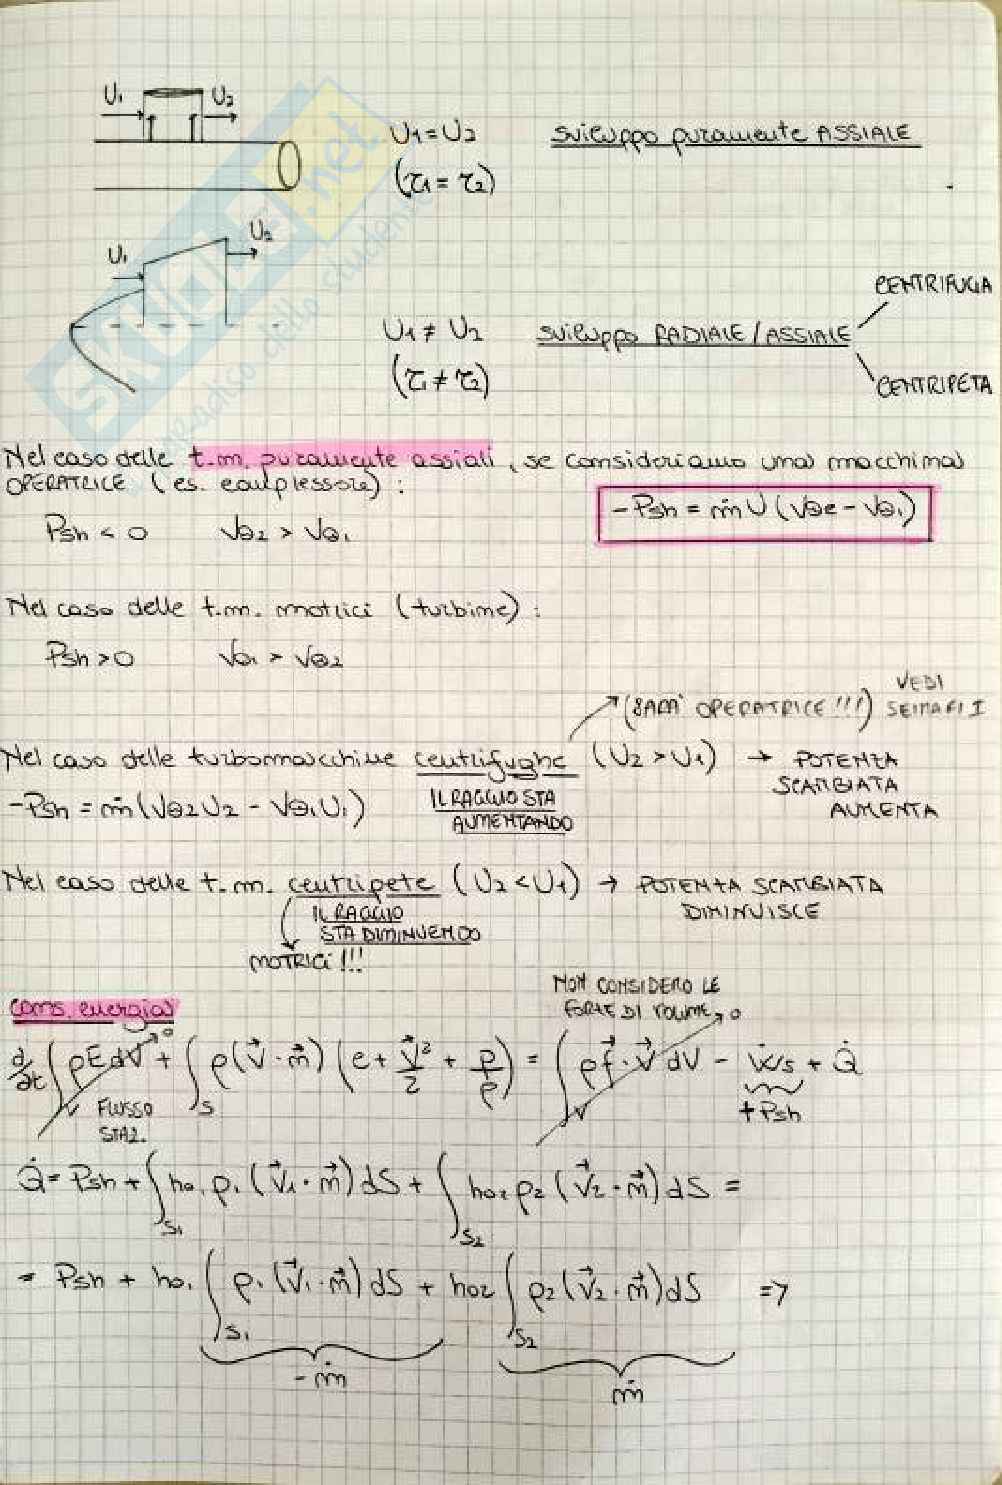 U₁ U₂
U₁ = U₂ sviluppo puramente ASSIALE
(r₁ = r₂)
U₁ U₂
CENTRIFUGA
U₁ ≠ U₂ sviluppo RADIALE / ASSIALE
(r₁ ≠ r₂)
CENTRIPETA
SKUOLA.net
paradiso dello studente
Nel caso delle t.m. puramente assiali, se consideriamo una macchina
OPERATRICE (es. compressore):
-Psh = ṁ U (Vθ2 - Vθ1)
Psh < 0 Vθ2 > Vθ1
Nel caso delle t.m. motrici (turbine):
Psh > 0 Vθ1 > Vθ2
(SARA' OPERATRICE!!!) VEDI
Nel caso delle turbomacchine centrifughe (U₂ > U₁) → POTENZA
SCAMBIATA
AUMENTA
-Psh = ṁ(Vθ2 U₂ - Vθ1 U₁)
IL RAGGIO STA
AUMENTANDO
Nel caso delle t.m. centripete (U₂ < U₁) → POTENZA SCAMBIATA
DIMINUISCE
IL RAGGIO
STA DIMINUENDO
MOTRICI!!!
cons. energia
NON CONSIDERO LE
FORZE DI VOLUME → 0
∂/∂t ∫_V ρE dV → 0 + ∫_S ρ(V⃗ · n⃗) (e + V⃗²/2 + p/ρ) = ∫_V ρf⃗ · V⃗ dV - Ẇs + Q̇
FLUSSO
STAZ.
+Psh
Q̇ = Psh + ∫_S₁ h₀₁ ρ₁ (V⃗₁ · n⃗) dS + ∫_S₂ h₀₂ ρ₂ (V⃗₂ · n⃗) dS =
= Psh + h₀₁ ∫_S₁ ρ₁ (V⃗₁ · n⃗) dS + h₀₂ ∫_S₂ ρ₂ (V⃗₂ · n⃗) dS =>
-ṁ ṁ